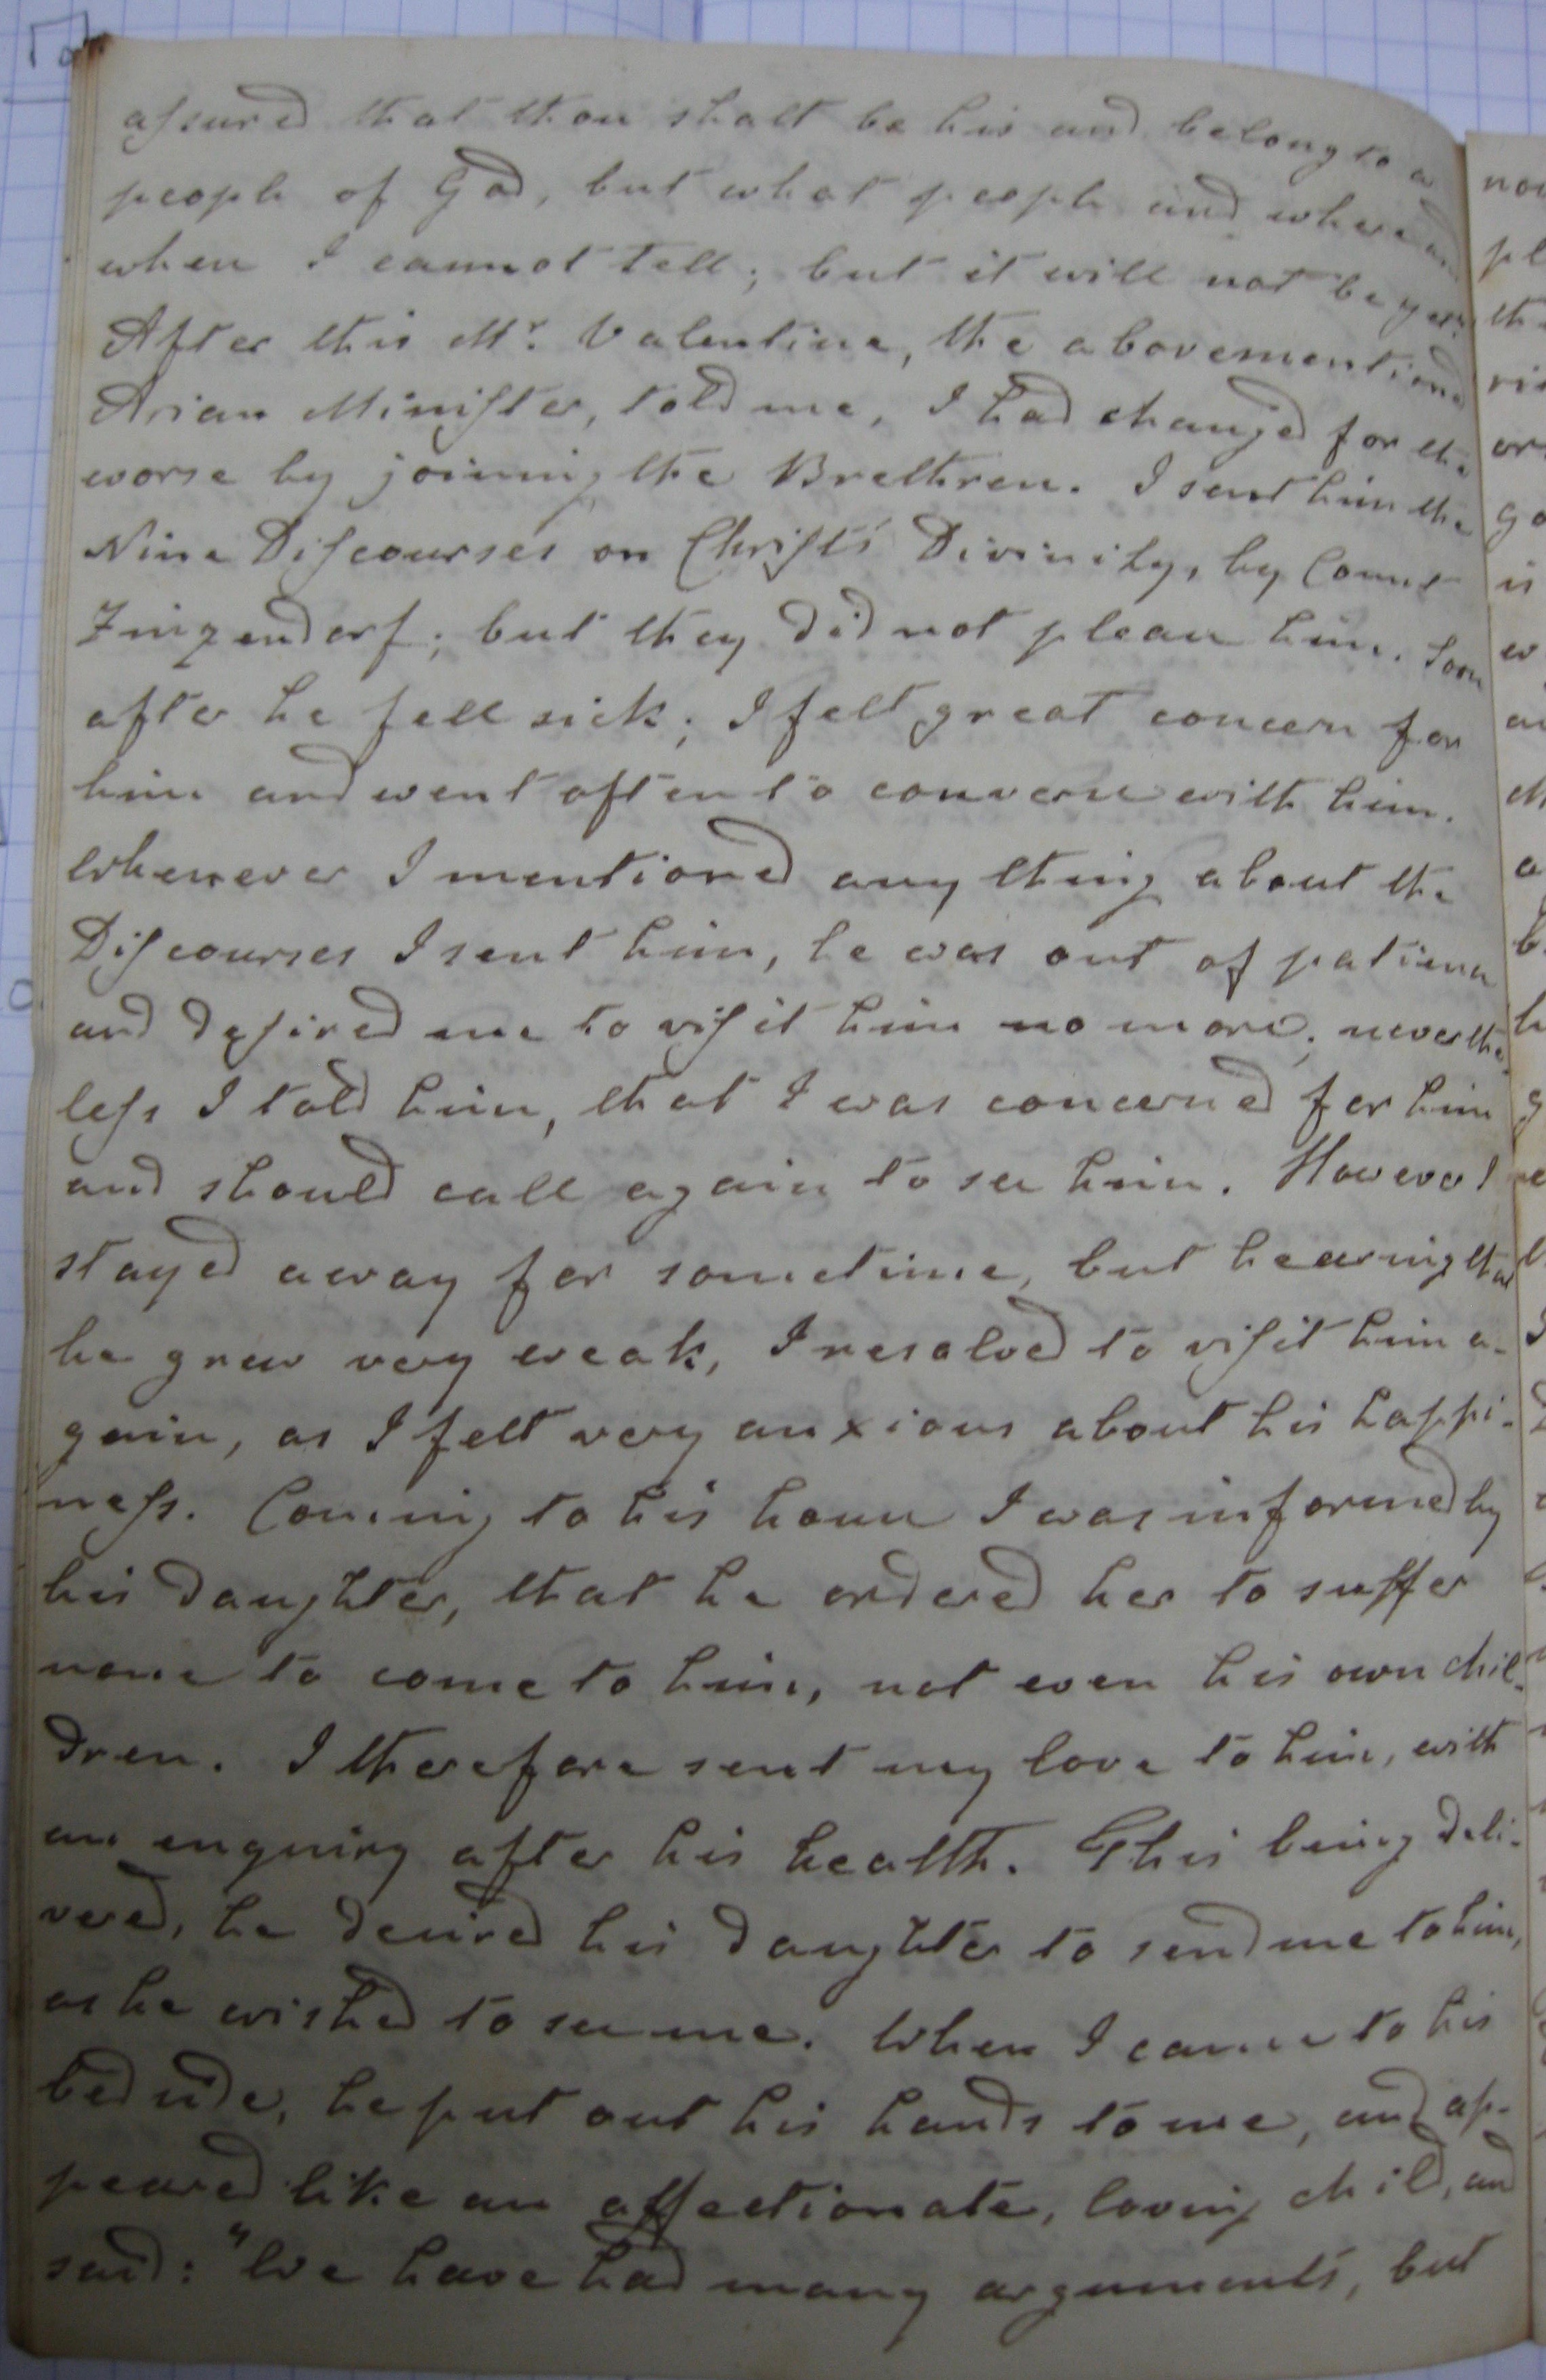 assured that thou shalt be his and belong to a
people of God, but what people and where and
when I cannot tell; but it will not be yet.
After this Mr. Valentine, the abovementioned
Arian Minister, told me, I had changed for the
worse by joining the Brethren. I sent him the
Nine Discourses on Christ's Divinity, by Count
Zinzendorf; but they did not please him. Soon
after he fell sick; I felt great concern for
him and went often to converse with him.
Whenever I mentioned any thing about the
Discourses I sent him, he was out of patience
and desired me to visit him no more; neverthe-
less I told him, that I was concerned for him
and should call again to see him. However I
stayed away for sometime, but hearing that
he grew very weak, I resolved to visit him a-
gain, as I felt very anxious about his happi-
ness. Coming to his house I was informed by
his daughter, that he ordered her to suffer
none to come to him, not even his own chil-
dren. I therefore sent my love to him, with
an enquiry after his health. This being deli-
vered, he desired his daughter to send me to him,
as he wished to see me. When I came to his
bedside, he put out his hands to me, and ap-
peared like an affectionate, loving child, and
said: "We have had many arguments, but